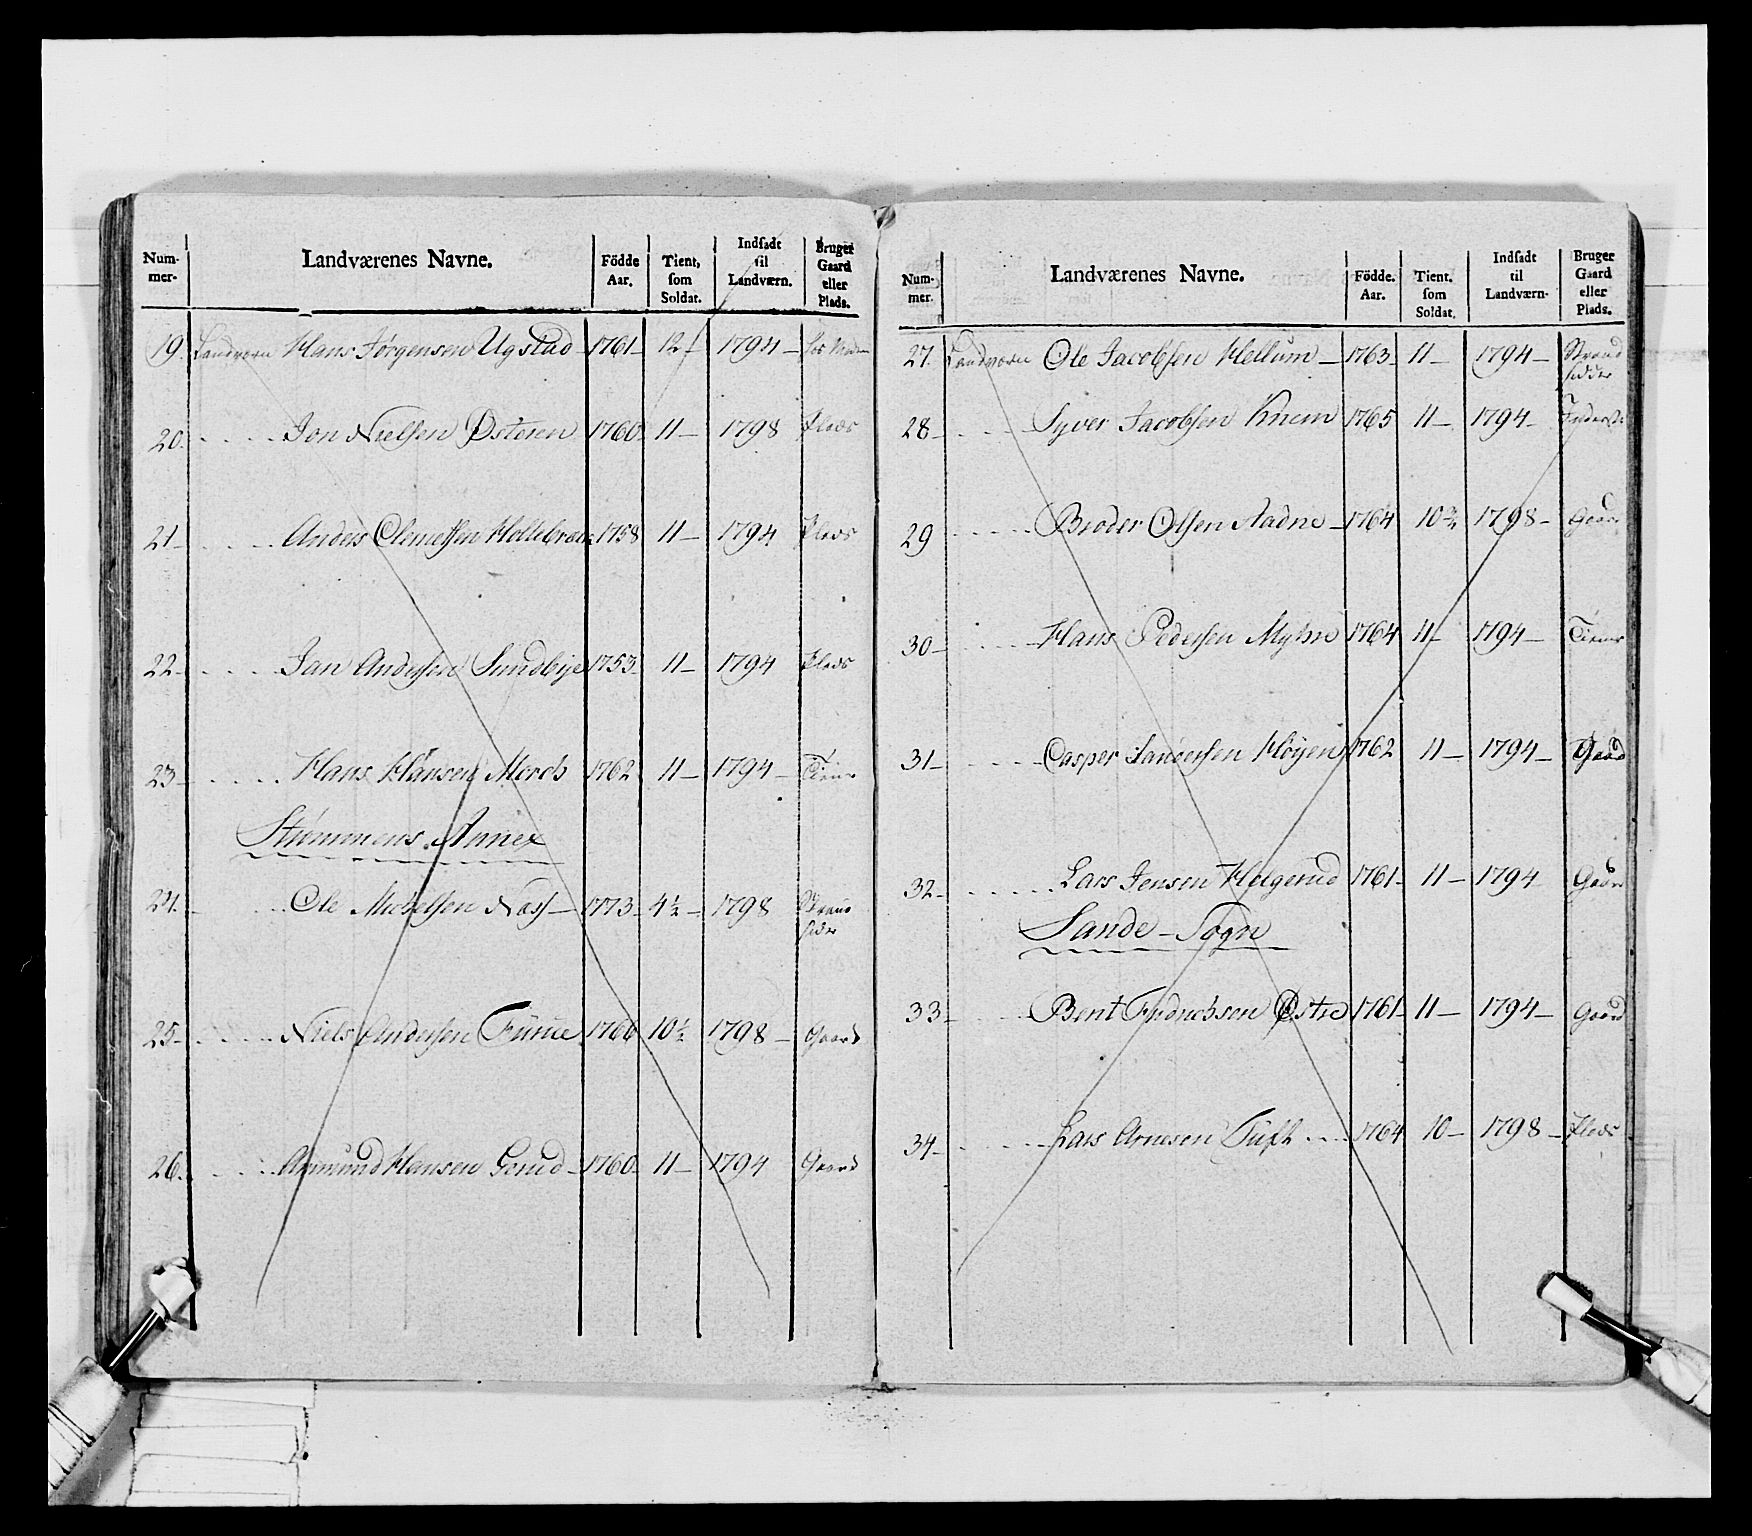 Num-
mer-
Landværenes Navne.
Födde
Aar.
Tient,
som
Soldat.
Indsadt
til
Landværn.
Bruger
Gaard
eller
Plads.
19. Landværn Hans Jørgensen Ugstad - 1761 - 12 - 1794 -
20. Jon Nielsen Østeren 1760 11 - 1798 Plads
21 - Anders Clemetsen 1758 11 - 1794 Plads
22 - Jan Andersen Sundbye 1753 11 - 1794 Plads
23 - Hans Hansen Morch 1762 11 - 1794 - Tiener
Strømmens Annex
24. Ole Michelsen - 1773 - 4½ - 1798 Strand
sider
25 - Niels Andersen Furue 1766 10½ 1798 - Gaard
26. Amund Hansen - 1760 11 - 1794 Gaard
Num-
mer.
Landværenes Navne.
Födde.
Aar.
Tient.
som
Soldat.
Indsadt
til
Landværn-
Bruger
Gaard
eller
Plads.
27. Landværn Ole Jacobsen Hellum - 1763 11 - 1794 - Strand
sidder
28 - Syver Jacobsen Knem 1765 11 - 1794 -
29 Broder Olsen Aadne - 1764 10¾ 1798 - Gaard
30 - Hans Pedersen Myhre 1764 11 - 1794 - Tiener
31 - Casper Høyen 1762 11 - 1794 - Gaard
32 - Lars Jensen Helgerud 1761 - 11 - 1794 Gaard
Sande - Sogn
33 - Bent Fredrichsen Østre 1761 - 11 - 1794 - Gaard
34 - Lars Arnesen Tuft 1764 10 - 1798 - Plads